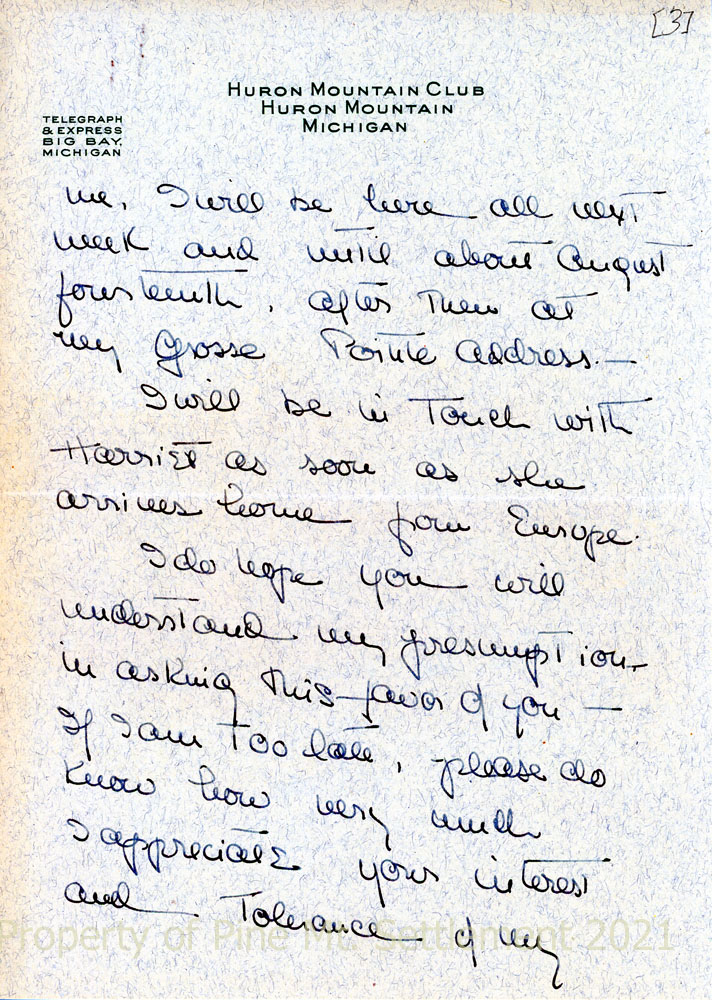 [3]
HURON MOUNTAIN CLUB
HURON MOUNTAIN
MICHIGAN
TELEGRAPH
& EXPRESS
BIG BAY,
MICHIGAN
me. I will be here all next
week and until about August
fourteenth, after then at
my Grosse Pointe address.—
I will be in touch with
Harriet as soon as she
arrives home from Europe.
I do hope you will
understand my presumption
in asking this favor of you —
If I am too late, please do
know how very much
I appreciate your interest
and tolerance of my
Property of Pine Mt. Settlement 2021